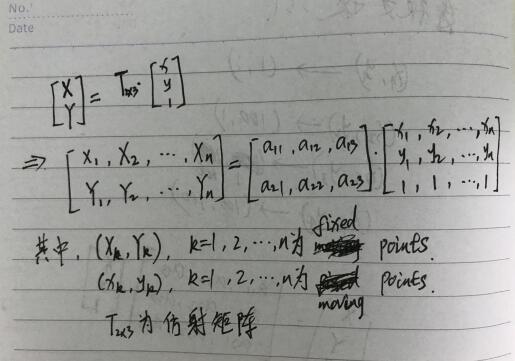 No.
Date
[X Y] = T₂ₓ₃· [x y 1]
⇒ [X₁, X₂, ⋯, Xₙ Y₁, Y₂, ⋯, Yₙ] = [a₁₁, a₁₂, a₁₃ a₂₁, a₂₂, a₂₃] · [x₁, x₂, ⋯, xₙ y₁, y₂, ⋯, yₙ 1, 1, ⋯, 1]
其中, (Xₖ, Yₖ), k=1, 2, ⋯, n为 fixed points.
(xₖ, yₖ), k=1, 2, ⋯, n为 moving points.
T₂ₓ₃为仿射矩阵